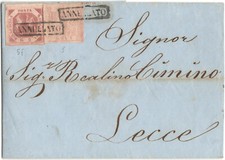 ANNULLATO
ANNULLATO
Signor
Sig.r Realino Cimino
Lecce